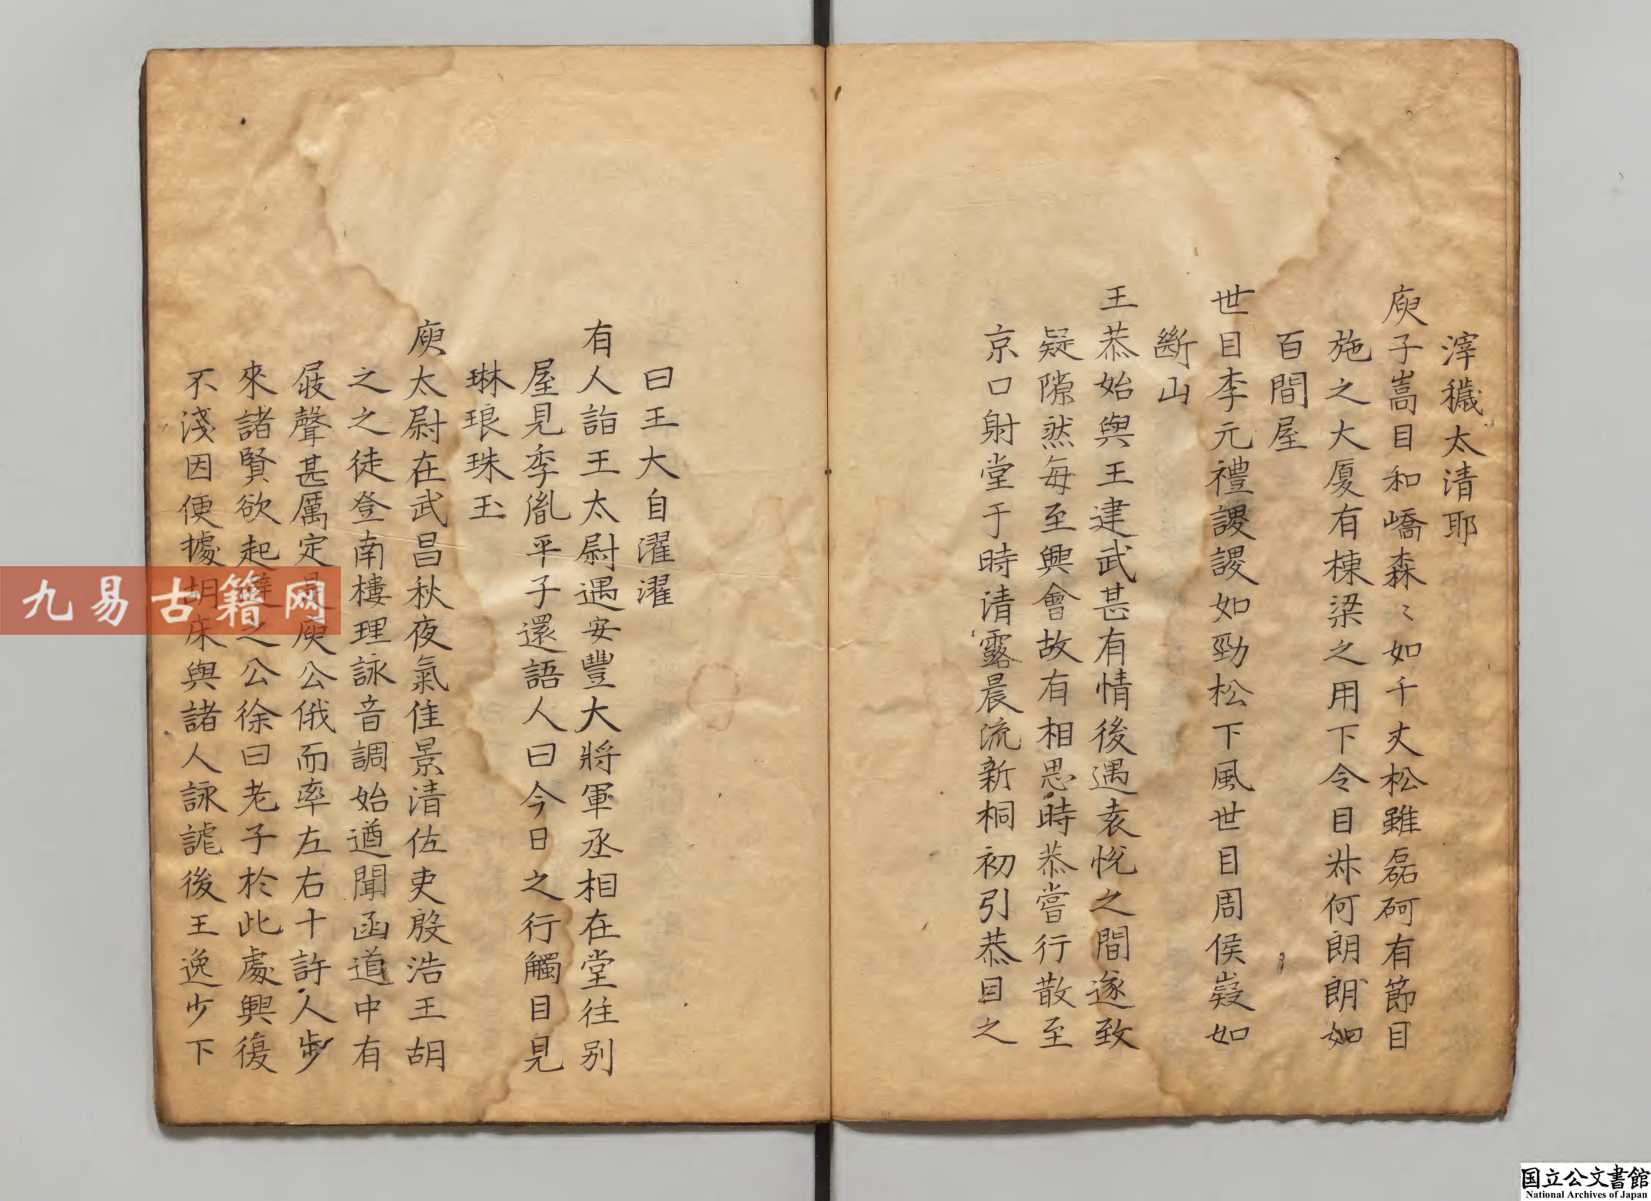 滓穢太清耶
庾子嵩目和嶠森〻如千丈松雖磊砢有節目
施之大厦有棟梁之用下令目叔何朗朗如
百間屋
世目李元禮謖謖如勁松下風世目周侯嶷如
斷山
王恭始與王建武甚有情後遇袁悅之間遂致
疑隙然每至興會故有相思時恭嘗行散至
京口射堂于時清露晨流新桐初引恭目之
曰王大自濯濯
有人詣王太尉遇安豐大將軍丞相在堂往别
屋見季胤平子還語人曰今日之行觸目見
琳琅珠玉
庾太尉在武昌秋夜氣佳景清佐吏殷浩王胡
之之徒登南樓理詠音調始遒聞函道中有
屐聲甚厲定是庾公俄而率左右十許人步
來諸賢欲起避之公徐曰老子於此處興復
不淺因便據胡床與諸人詠謔後王逸少下
九易古籍网
国立公文書館
National Archives of Japan